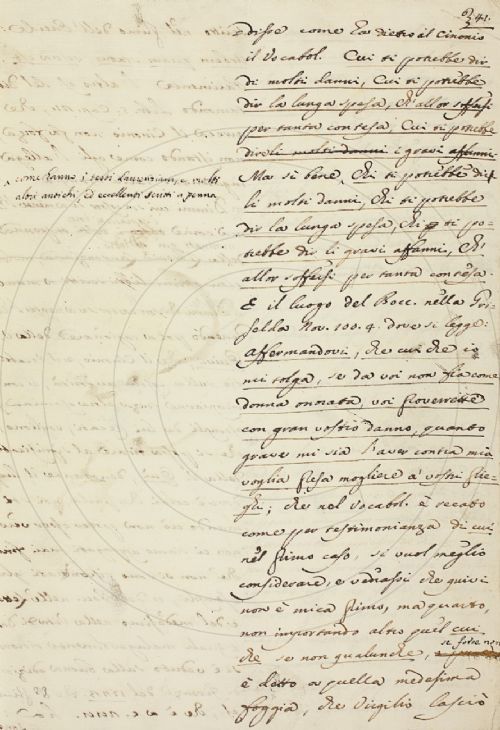 241.
disse come ha dietro il Cinonio
il Vocabol. Cui ti potrebbe dir
di molti danni, Cui ti potrebbe
dir la lunga spesa, Ch'allor soffersi
per tanta contesa, Cui ti potrebbe
dire li molti danni i gravi affanni.
Ma sì bene, Chi ti potrebbe dir
li molti danni, Chi ti potrebbe
dir la lunga spesa, Chi ti po-
trebbe dir li gravi affanni, Ch'
allor soffersi per tanta contesa.
come hanno i testi Laurenziani, e molti
altri antichi, ed eccellenti scritti a penna
E il luogo del Bocc. nella Gri-
selda Nov. 100. 4. dove si legge:
Affermandovi, che cui che io
mi tolga, se da voi non fia come
donna onorata, voi proverrete
con gran vostro danno, quanto
grave mi sia l'aver contra mia
voglia presa mogliere a' vostri prie-
ghi; che nel Vocabol. è recato
come per testimonianza di cui
nel primo caso, si vuol meglio
considerare, e vedrassi che quivi
non è mica primo, ma quarto,
non importando altro quel cui
che se non qualunche, se forse non
è detto a quella medesima
foggia, che Virgilio lasciò